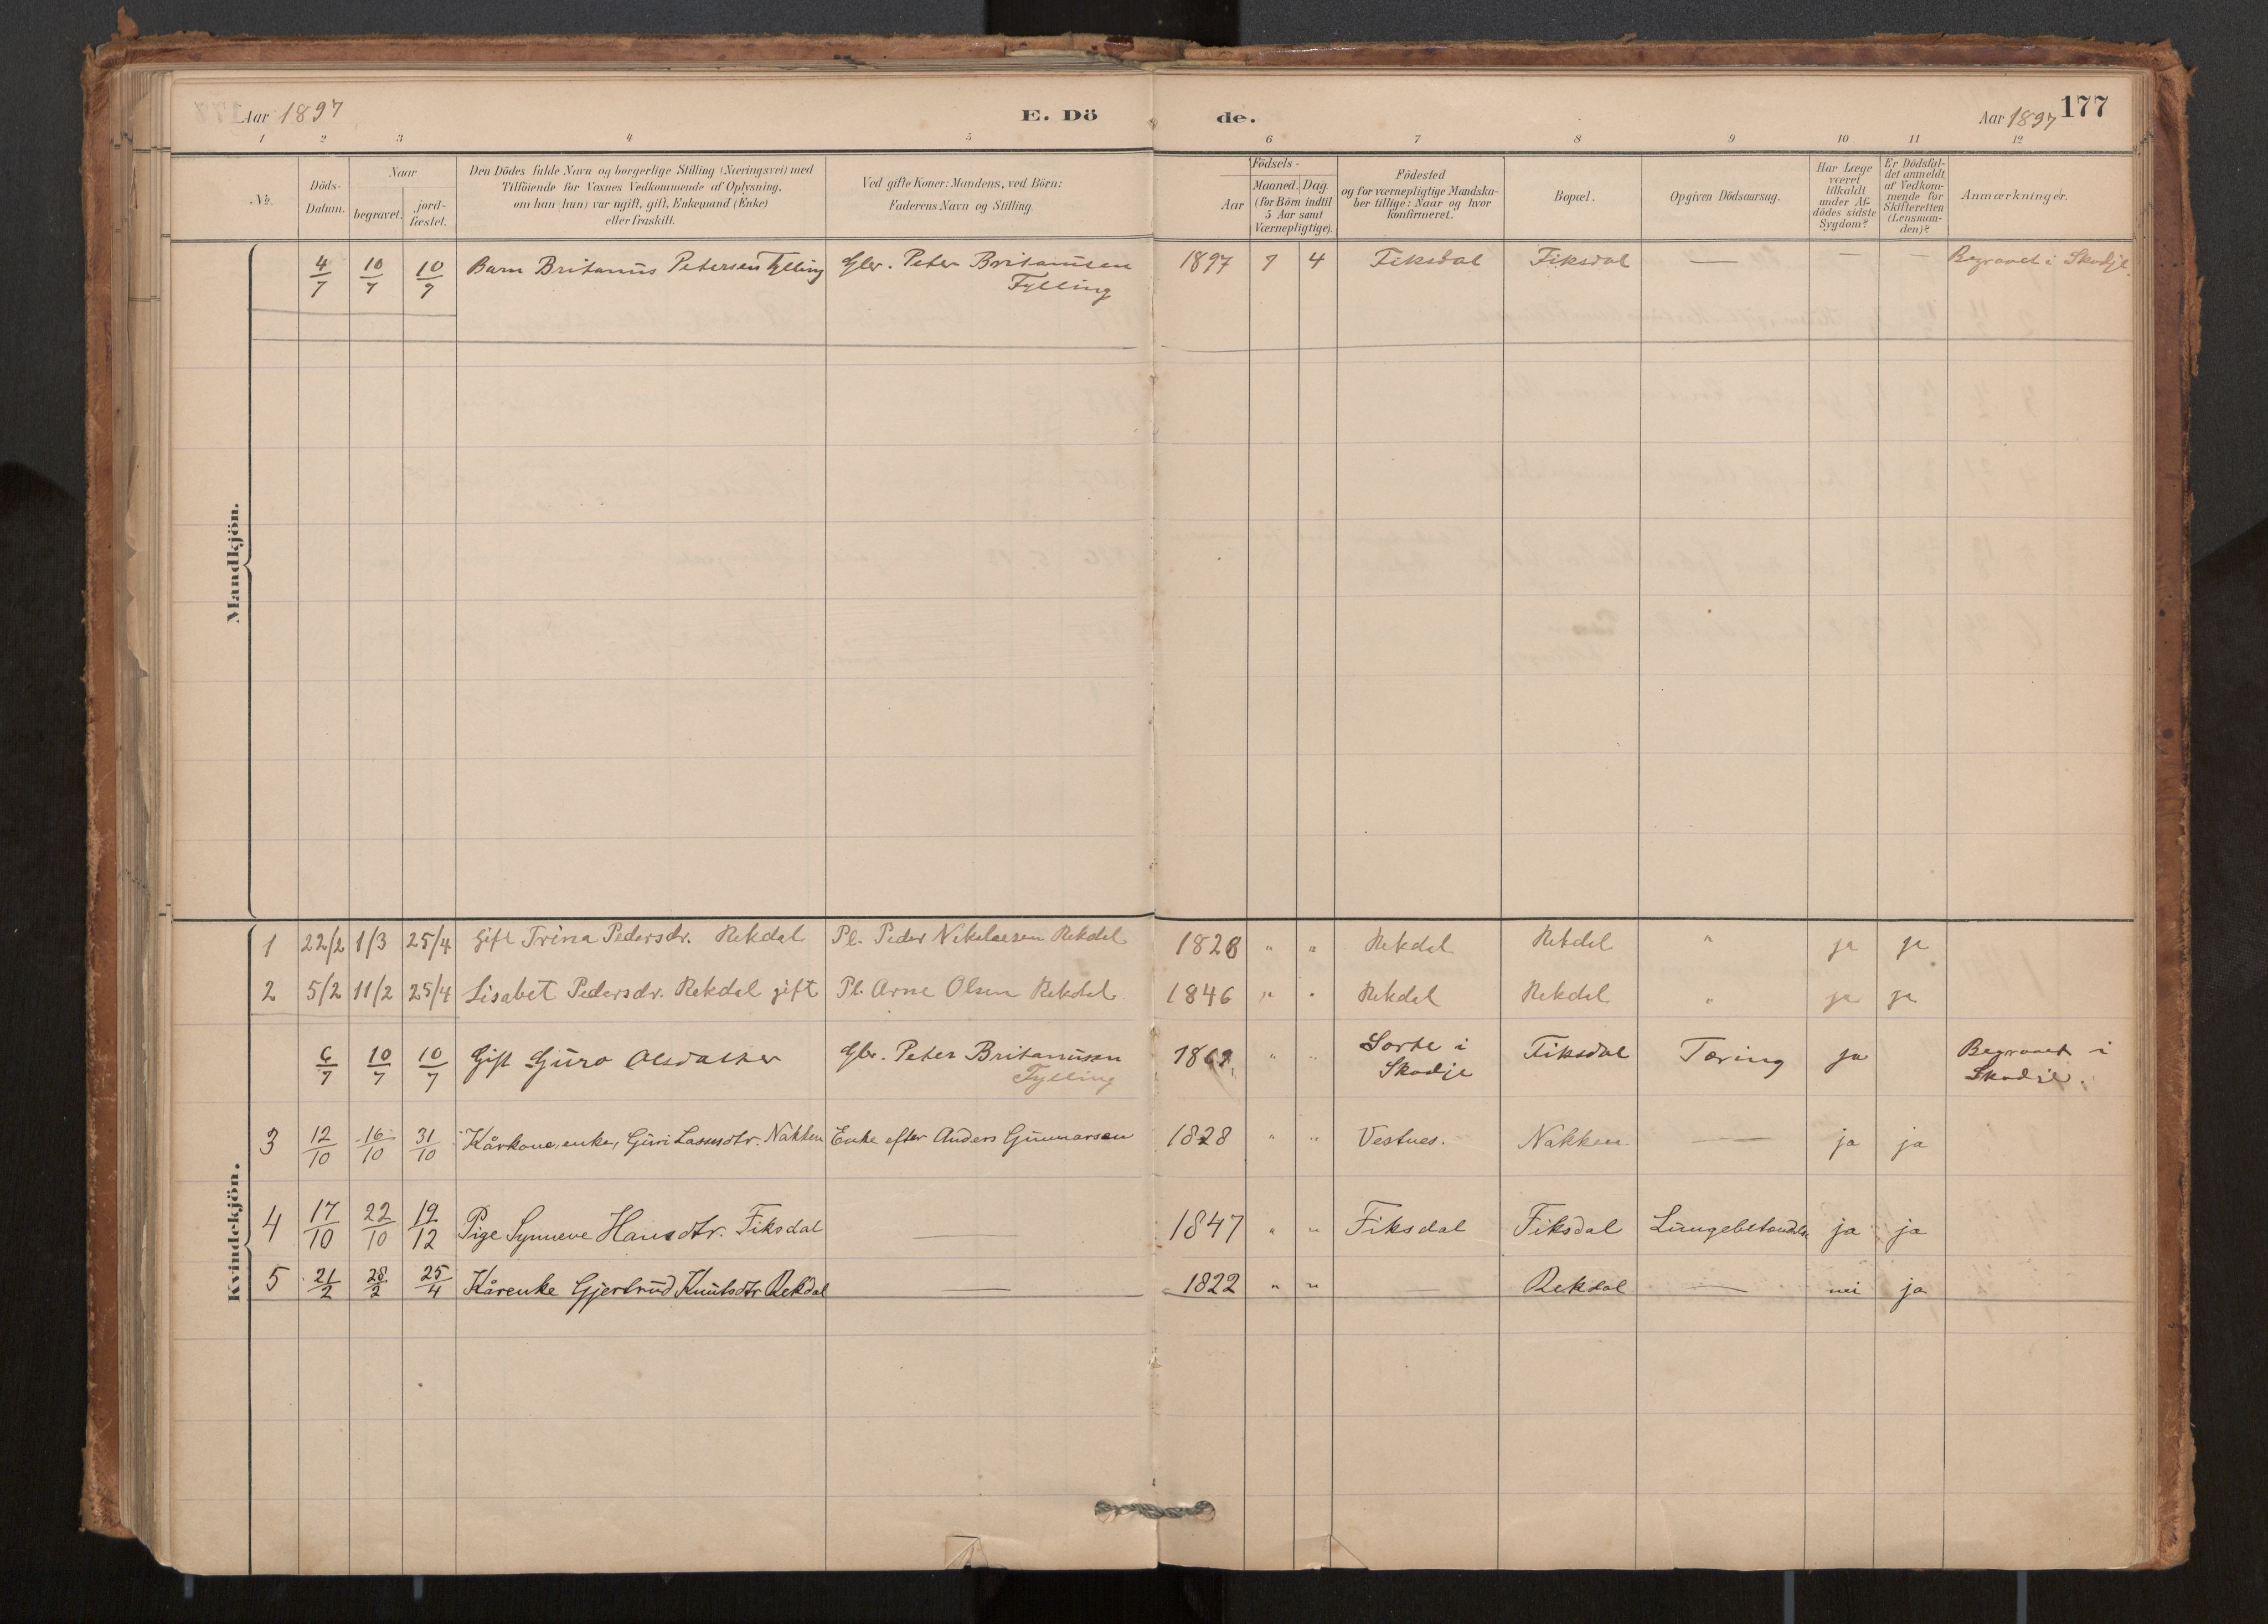 Aar 1897 E. Dö de. Aar 1897 177
1 2 3 4 5 6 7 8 9 10 11 12
No. Döds-Datum. Naar begravet. jord-fæstet. Den Dödes fulde Navn og borgerlige Stilling (Næringsvei) med Tilföiende for Voxnes Vedkommende af Oplysning, om han (hun) var ugift, gift, Enkemand (Enke) eller fraskilt. Ved gifte Koner: Mandens, ved Börn: Faderens Navn og Stilling. Födsels- Aar Maaned. Dag. (for Börn indtil 5 Aar samt Værnepligtige). Födested og for værnepligtige Mandskaber tillige: Naar og hvor konfirmeret. Bopæl. Opgiven Dödsaarsag. Har Læge været tilkaldt under Afdödes sidste Sygdom? Er Dödsfaldet anmeldt af Vedkommende for Skifteretten (Lensmanden)? Anmærkninger.
Mandkjön.
4/7 10/7 10/7 Barn Britanus Petersen Fylling Gbr. Peter Britanusen 1897 7 4 Fiksdal Fiksdal — — — Begravet i Skodje.
Fylling
Kvindekjön.
1 22/2 1/3 25/4 gift Trina Pedersdr. Rekdal Pl. Peder Nikolaesen Rekdal 1828 " " Rekdal Rekdal " ja ja
2 5/2 11/2 25/4 Lisabet Pedersdr. Rekdal gift Pl. Arne Olsen Rekdal. 1846 " " Rekdal Rekdal " ja ja
6/7 10/7 10/7 Gift Guro Olsdatter Gbr. Peter Britanusen 1869 " " Sorte i Fiksdal Tæring ja Begravet i
Fylling Skodje Skodje.
3 12/10 16/10 31/10 Kårkone, enke, Guri Lassesdtr. Nakken Enke efter Anders Gunnarsen 1828 " " Vestnes. Nakken — ja ja
4 17/10 22/10 19/12 Pige Synneve Hansdtr. Fiksdal — 1847 " " Fiksdal Fiksdal Lungebetændelse ja ja
5 21/2 28/2 25/4 Kårenke Gjertrud Knutsdtr Rekdal — 1822 " " — Rekdal — nei ja